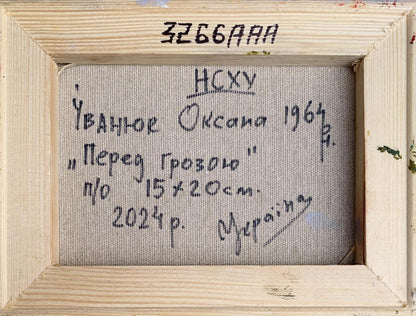 3Z66AAA
НСХУ
Іванюк Оксана 1964 р.н.
„Перед грозою"
п/о 15×20см.
2024р. Україна